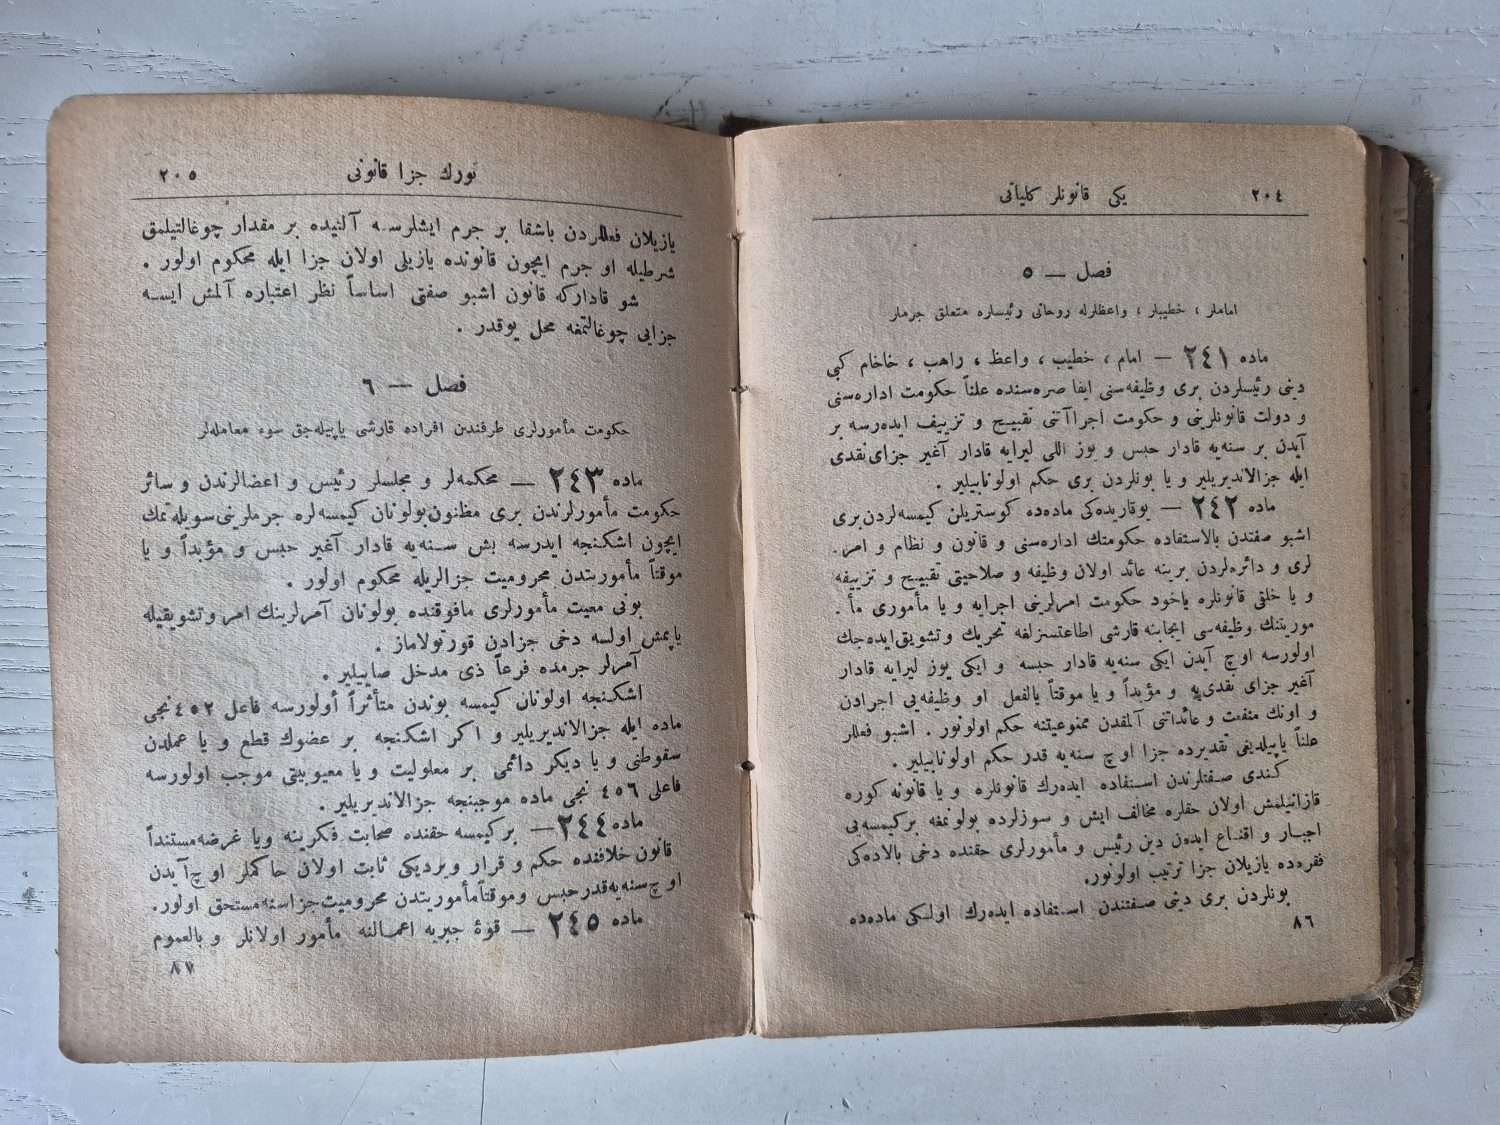 ٢٠٤ يكى قانونلر كلياتى
فصل — ٥
اماملر ، خطيبلر ، واعظلرله روحانى رئيسلره متعلق جرملر
ماده ٢٤١ — امام ، خطيب ، واعظ ، راهب ، خاخام كبى
دينى رئيسلردن برى وظيفه‌سنى ايفا صره‌سنده علناً حكومت اداره‌سنى
و دولت قانونلرينى و حكومت اجراآتنى تقبيح و تزييف ايدرسه بر
آيدن بر سنه‌يه قادار حبس و يوز اللى ليرايه قادار آغير جزاى نقدى
ايله جزالانديريلير و يا بونلردن برى حكم اولونابيلير .
ماده ٢٤٢ — يوقاريده‌كى ماده‌ده كوستريلن كيمسه‌لردن برى
اشبو صفتدن بالاستفاده حكومتك اداره‌سنى و قانون و نظام و امر .
لرى و دائره‌لردن برينه عائد اولان وظيفه و صلاحيتى تقبيح و تزييفه
و يا خلقى قانونلره ياخود حكومت امرلرينى اجرايه و يا مأمورى مأ .
موريتنك وظيفه‌سى ايجابنه قارشى اطاعتسزلغه تحريك و تشويق ايده‌جك
اولورسه اوچ آيدن ايكى سنه‌يه قادار حبسه و ايكى يوز ليرايه قادار
آغير جزاى نقدى‌يه و مؤبداً و يا موقتاً بالفعل او وظيفه‌يى اجرادن
و اونك منفعت و عائداتنى آلمقدن ممنوعيتنه حكم اولونور . اشبو فعللر
علناً ياپيلديغى تقديرده جزا اوچ سنه‌يه قدر حكم اولونابيلير .
كندى صفتلرندن استفاده ايده‌رك قانونلره و يا قانونه كوره
قازانيلمش اولان حقلره مخالف ايش و سوزلرده بولونمغه بركيمسه‌يى
اجبار و اقناع ايده‌ن دين رئيس و مأمورلرى حقنده دخى بالاده‌كى
فقره‌ده يازيلان جزا ترتيب اولونور.
بونلردن برى دينى صفتندن استفاده ايده‌رك اولكى ماده‌ده
٨٦
تورك جزا قانونى ٢٠٥
يازيلان فعللردن باشقا بر جرم ايشلرسه آلتيده بر مقدار چوغالتيلمق
شرطيله او جرم ايچون قانونده يازيلى اولان جزا ايله محكوم اولور .
شو قاداركه قانون اشبو صفتى اساساً نظر اعتباره آلمش ايسه
جزايى چوغالتمغه محل يوقدر .
فصل — ٦
حكومت مأمورلرى طرفندن افراده قارشى ياپيله‌جق سوء معامله‌لر
ماده ٢٤٣ — محكمه‌لر و مجلسلر رئيس و اعضالرندن و سائر
حكومت مأمورلرندن برى مظنون‌بولونان كيمسه‌لره جرملرينى‌سويله‌تمك
ايچون اشكنجه ايدرسه بش سنه‌يه قادار آغير حبس و مؤبداً و يا
موقتاً مأموريتدن محروميت جزالريله محكوم اولور .
بونى معيت مأمورلرى مافوقنده بولونان آمرلرينك امر وتشويقيله
ياپمش اولسه دخى جزادن قورتولاماز .
آمرلر جرمده فرعاً ذى مدخل صاييلير .
اشكنجه اولونان كيمسه بوندن متأثراً اولورسه فاعل ٤٥٢ نجى
ماده ايله جزالانديريلير و اكر اشكنجه بر عضوك قطع و يا عملدن
سقوطنى و يا ديكر دائمى بر معلوليت و يا معيوبيتى موجب اولورسه
فاعلى ٤٥٦ نجى ماده موجبنجه جزالانديريلير .
ماده ٢٤٤ — بركيمسه حقنده صحابت فكرينه ويا غرضه‌مستنداً
قانون خلافنده حكم و قرار ويرديكى ثابت اولان حاكملر اوچ آيدن
اوچ سنه‌يه قدرحبس وموقتاًمأموريتدن محروميت‌جزاسنه‌مستحق اولور.
ماده ٢٤٥ — قوهٔ جبريه اعمالنه مأمور اولانلر و بالعموم
٨٧